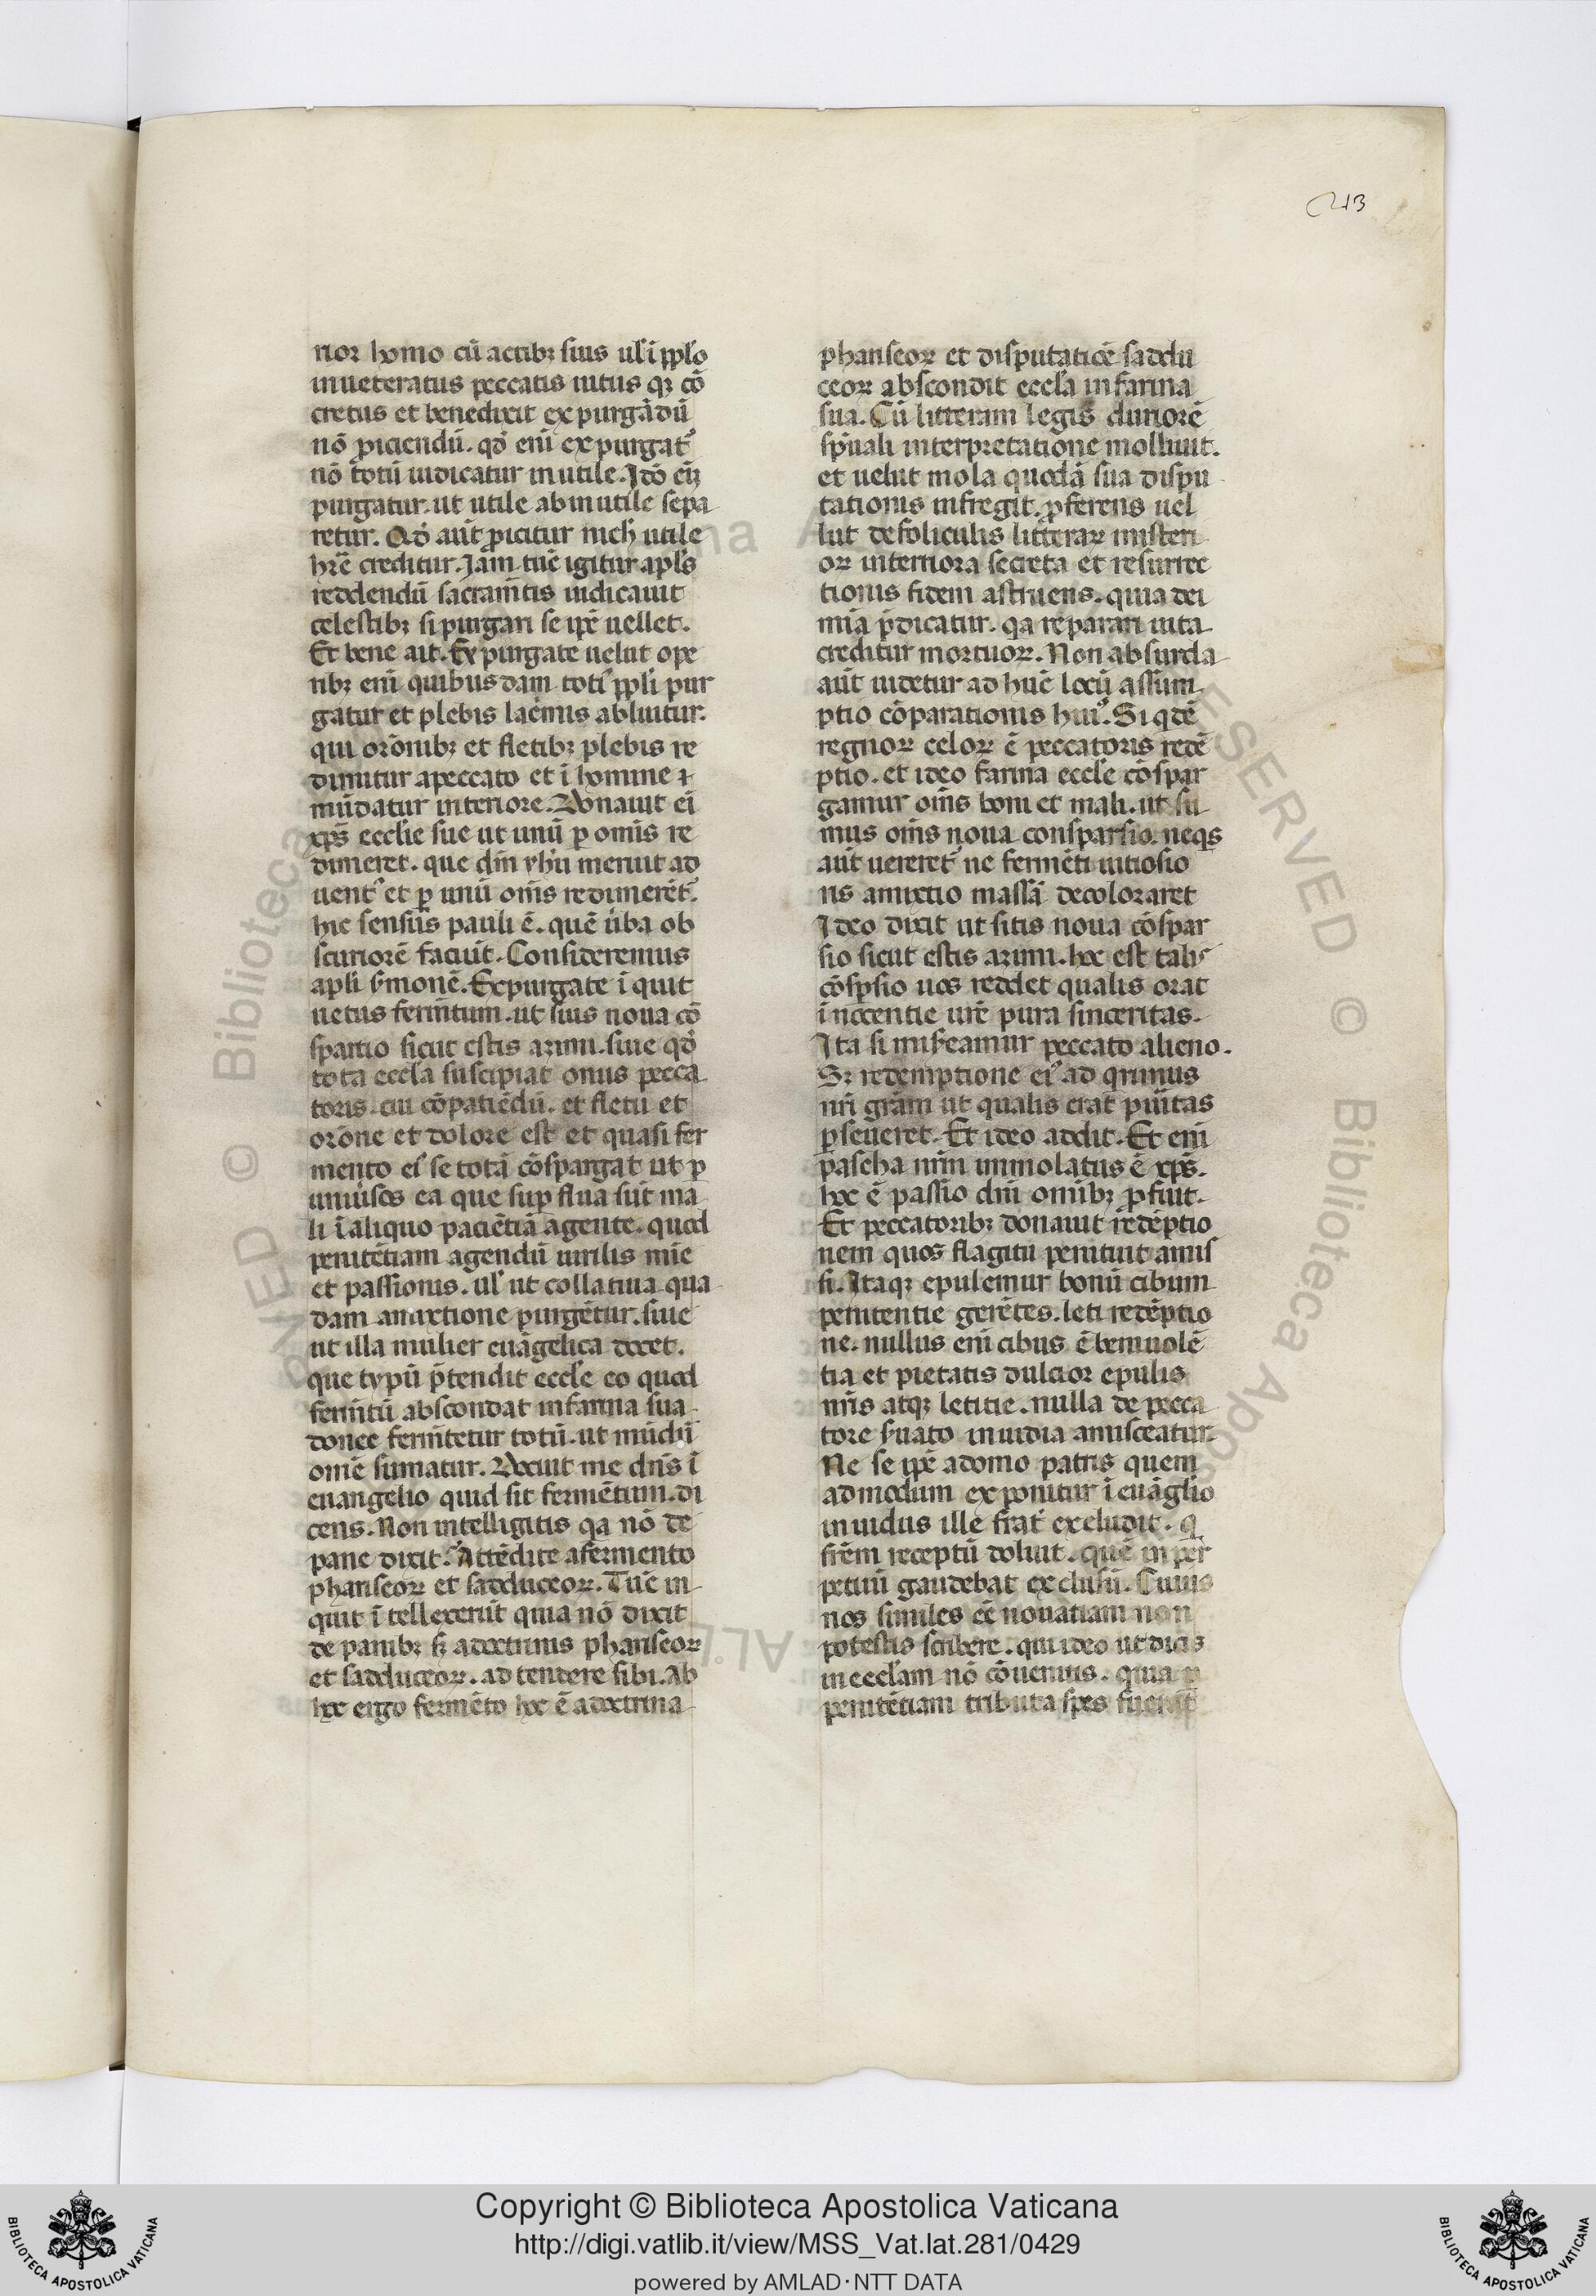 213
rior homo cū actibꝫ suis ul̓ ī ppl̓o
inueteratus peccatis intus qꝫ cō
cretus et benedixit expurgādū
nō ꝓiciendū. qd̓ eni expurgat᷑
nō totū iudicatur inutile. Ido eī
purgatur. ut utile ab inutile sepa
retur. Qd̓ aūt ꝓicitur nich̓ utile
hr̄e creditur. Jam tūc igitur apl̓s
reddendū sacram̄tis iudicauit
celestibꝫ si purgari se ip̄e uellet.
Et bene ait. Expurgate uelut ope
ribꝫ eni quibusdam toti᷒ ppl̓i pur
gatur et plebis lac̄mis abluitur.
qui orōnibꝫ et fletibꝫ plebis re
dimitur a peccato et ī homine
mūdatur interiore. Donauit ei
xp̄s eccl̓ie sue ut unū ꝑ om̄is re
dimeret. que dn̄i yhū meruit ad
uent᷒ et ꝑ unū om̄is redimerēt᷑.
hic sensus pauli ē. quē ūba ob
scuriorē faciūt. Consideremus
apl̓i ẜmonē. Expurgate īquit
uetus ferm̄tum. ut sitis noua cō
sparsio sicut estis azimi. siue qd̓
tota eccl̓a suscipiat onus pecca
toris. cui cōpatiēdū. et fletu et
orōne et dolore est et quasi fer
mento ei᷒ se totā cōspargat ut ꝑ
uniūsos ea que suꝑflua sūt ma
li ī aliquo paciētiā agente. quod
penitētiam agendū uirilis mīe
et passionis. ul̓ ut collatiua qua
dam amixtione purgētur. siue
ut illa mulier euāgelica docet.
que typū p̄tendit eccl̓e eo quod
ferm̄tū abscondat in farina sua
donec ferm̄tetur totū. ut mūdū
om̄e sumatur. Docuit me dn̄s ī
euangelio quid sit fermētum. di
cens. Non intelligitis qa nō de
pane dixit. Attēdite a fermento
phariseoꝝ et sadduceoꝝ. Tūc in
quit ītellexerūt quia nō dixit
de panibꝫ ẜ a doctrinis phariseoꝝ
et sadduceoꝝ. adtendere sibi. Ab
hoc ergo fermēto hoc ē a doctrina
phariseoꝝ et disputaticē saddu
ceoꝝ abscondit eccl̓a in farina
sua. Cū litteram legis duriorē
sp̄uali interpretatione mollinit.
et uelut mola quodā sua dispu
tationis infregit. ꝓferens uel
lut de foliculis litteraꝝ misteri
oꝝ interiora secreta et resurrec
tionis fidem astruens. quia dei
mīa p̄dicatur. qa reparari uita
creditur mortuoꝝ. Non absurda
aūt uidetur ad hūc locū assum
ptio cōparationis hui᷒. Si qdē
regnoꝝ celoꝝ ē peccatoris redē
ptio. et ideo farina eccl̓e cōspar
gamur om̄s boni et mali. ut si
mus om̄s noua consparsio. neqs
aūt uereret᷑ ne fermēti uitiosio
ris amixtio massā decoloraret
Ideo dixit ut sitis noua cōspar
sio sicut estis azimi. hoc est talis
cōsp̄sio uos reddet qualis erat
īnocentie ur̄e pura sinceritas.
Ita si misceamur peccato alieno.
Sꝫ redemptione ei᷒ adqrimus
nr̄i gr̄am ut qualis erat pu᷑itas
ꝑseueret. Et ideo addit. Et eni
pascha nr̄m immolatus ē xp̄s.
hoc ē passio dn̄i om̄ibꝫ ꝓfuit.
Et peccatoribꝫ donauit redēptio
nem quos flagitii penituit amis
si. Itaqꝫ epulemur bonū cibum
penitentie gerētes. leti redēptio
ne. nullus eni cibus ē beniuolē
tia et pietatis dulcior epulis
nr̄is atqꝫ letitie. nulla de pecca
tore ẜuato inuidia amisceatur.
Ne se ip̄e a domo patris quem
admodum exponitur ī euāglio
inuidus ille frat̄ excludit. q
fr̄em receptū doluit. quē in per
petuū gaudebat exclusū. Cuius
nos similes eē nouatiam non
potestis scribere. qui ideo ut dicis
in eccl̓am nō cōuenitis. quia ꝑ
penitētiam tributa spes fuerat